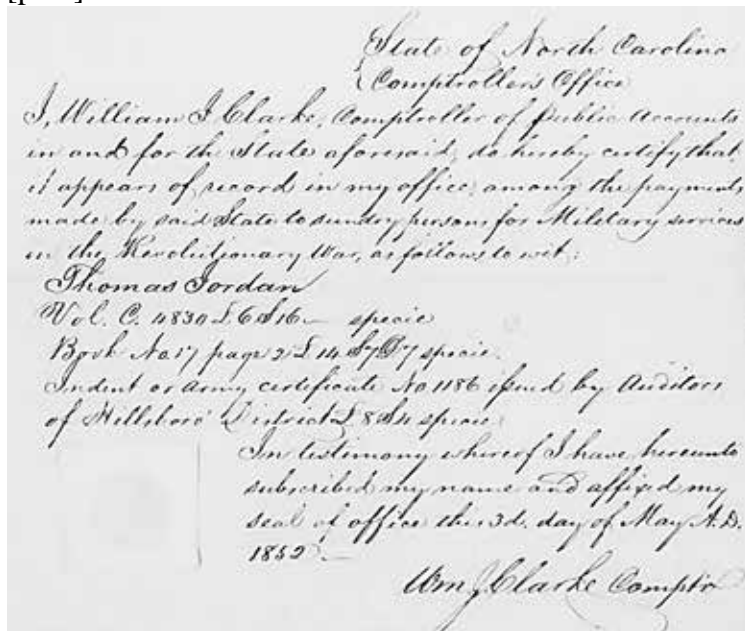 State of North Carolina
Comptroller's Office
I, William J Clarke, Comptroller of Public Accounts
in and for the State aforesaid, do hereby certify that
it appears of record in my office, among the payments
made by said State to sundry persons for Military services
in the Revolutionary War, as follows to wit:
Thomas Jordan
Vol. C. 4830 £6 S16 — specie
Book No 17 page 2 £14 S7 D7 specie.
Indent or army certificate No 1186 issued by Auditors
of Hillsboro' District £8 S4 specie
In testimony whereof I have hereunto
subscribed my name and affixed my
seal of office this 3d. day of May A.D.
1852.—
Wm J Clarke Comptr